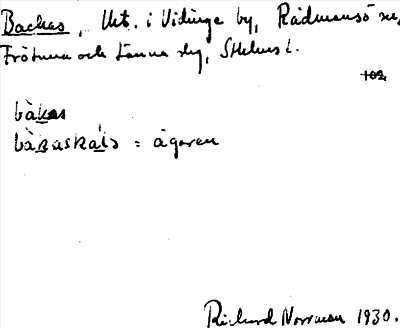 Backas, Utt. i Vidinge by, Rådmansö sn,
Frötuna och Länna slg, Sthlms l.
102
bàkas
bàkaskáls = ägaren
Richard Norrman 1930.